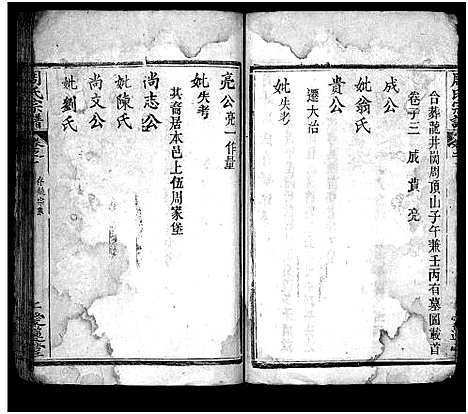 合葬龍井崗周頂山子午兼壬丙有墓圖載首
卷子三 成 貴 亮
成公
妣翁氏
貴公
遷大冶
妣失考
亮公亮一作量
妣失考
其裔居本邑上伍周家堡
尚志公
妣陳氏
尚文公
妣劉氏
周氏宗譜